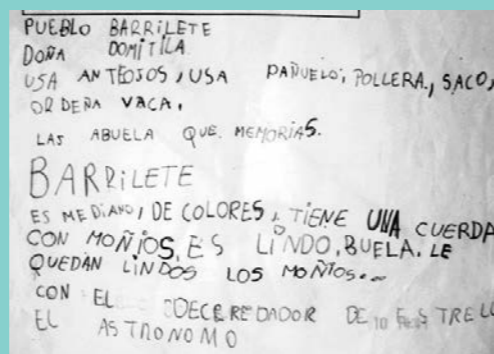 PUEBLO BARRILETE
DOÑA DOMITILA
USA ANTEOJOS, USA PAÑUELO, POLLERA, SACO,
ORDEÑA VACA,
LAS ABUELA QUE MEMORIAS.
BARRILETE
ES MEDIANO, DE COLORES, TIENE UNA CUERDA
CON MOÑIOS, ES LINDO, BUELA. LE
QUEDAN LINDOS LOS MOÑIOS...
CON EL DE
EL ASTRONOMO